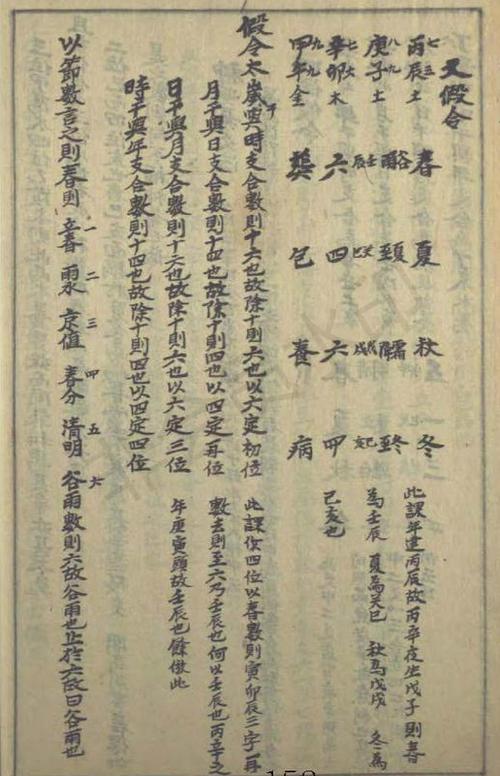 又假令
丙辰土 七五 春 夏 秋 冬
庚子土 八九 谿 壬辰 頸 癸巳 孺 戊戌 終 己亥
辛卯木 七六 六 四 六 四
甲午金 九九 葬 包 養 病
此課年建丙辰故丙辛夜生戊子則春
為壬辰 夏為癸巳 秋為戊戌 冬為
己亥也
假令太歲干與時支合數則十六也故除十則六也以六定初位
月干與日支合數則十四也故除十則四也以四定再位
日干與月支合數則十六也故除十則六也以六定三位
時干與年支合數則十四也故除十則四也以四定四位
此課作四位以春數則寅卯辰三字再
數去則至六乃壬辰也何以壬辰也丙辛之
年庚寅頭故壬辰也餘倣此
以節數言之則春則 立春 一 雨水 二 京値 三 春分 四 清明 五 谷雨 六 數則六故谷雨也止於六故曰谷雨也
158